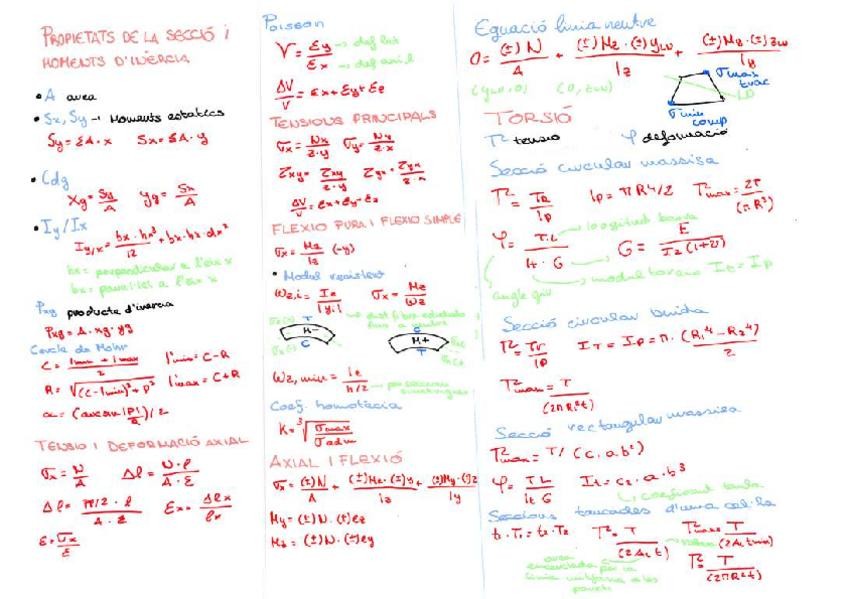 PROPIETATS DE LA SECCIÓ I
MOMENTS D'INÈRCIA
• A area
• Sx, Sy → Moments estàtics
Sy = ΣA · x   Sx = ΣA · y
• Cdg
xg = Sy/A   yg = Sx/A
• Iy/Ix
Iy/x = bx · hx³/12 + bx · hx · dx²
bx = perpendicular a l'eix x
bx = paral·lel a l'eix x
Pxy producte d'inèrcia
Pxy = A · xg · yg
Cercle de Mohr
C = (Imin + Imax)/2   Imin = C - R
R = √((C - Imin)² + P²)   Imax = C + R
α = (arcsin |P|/R)/2
TENSIO I DEFORMACIÓ AXIAL
σx = N/A   Δl = N · l/(A · E)
Δl = P1/2 · l/(A · E)   εx = Δlx/lx
ε = σx/E
Poisson
V = εy/εx → def lat → def axial
ΔV/V = εx + εy + εz
TENSIONS PRINCIPALS
σx = Nx/(z · y)   σy = Ny/(z · x)
τxy = τxy/(z · y)   τyx = τyx/(z · x)
ΔV/V = εx + εy - εz
FLEXIÓ PURA I FLEXIÓ SIMPLE
σx = Mz/Iz (-y)
• Mòdul resistent
Wz,i = Iz/|yi|   σx = Mz/Wz
M-   M+
T   C   C   T
Wz,min = Iz/(h/2) → per seccions simètriques
Coef. homotècia
K = ³√(σmax/σadm)
AXIAL I FLEXIÓ
σx = (±)N/A + (±)Mz · (±)y/Iz + (±)My · (±)z/Iy
My = (±)N · (±)ez
Mz = (±)N · (±)ey
Equació línia neutre
0 = (±)N/A + (±)Mz · (±)yLN/Iz + (±)My · (±)zLN/Iy
(yLN, 0)   (0, zLN)
σmax trac
LN
σmin comp
TORSIÓ
τ tensio   φ deformació
Secció circular massisa
τ = TR/Ip   Ip = πR⁴/2   τmax = 2T/(πR³)
φ = TL/(It · G) → longitud barra   G = E/(2(1+ν))
angle gir   modul torsio It = Ip
Secció circular buida
τ = Tr/Ip   IT = Ip = π · (R1⁴ - R2⁴)/2
τmax = T/(2πR²t)
Secció rectangular massisa
τmax = T/(c · a · b²)
φ = TL/(It G)   It = c2 · a · b³
coeficient taula
Seccions tancades d'una cel·la
t1 · τ1 = t2 · τ2   τ = T/(2AL t)   τmax = T/(2AL tmin)
area encerclada per la línia mitjana a les parets
τ = T/(2πR²t)